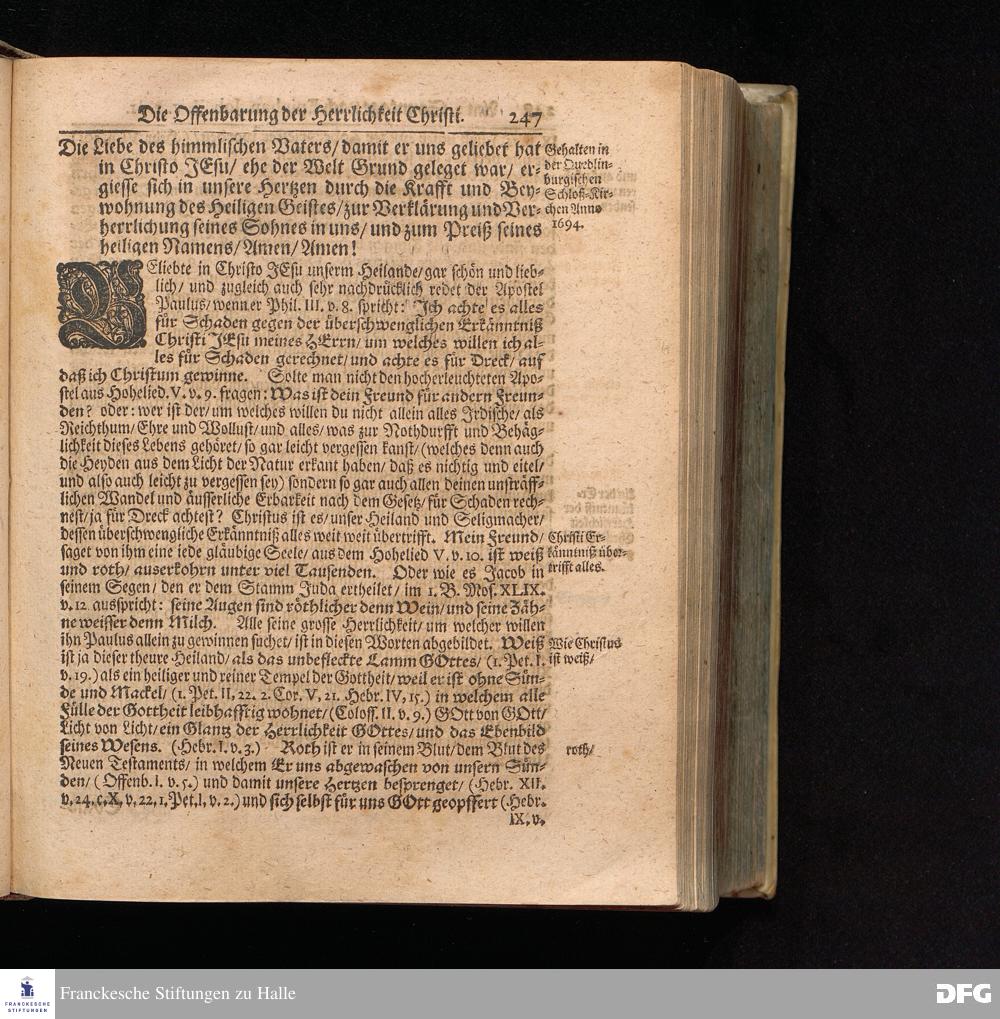 Die Offenbarung der Herrlichkeit Christi. 247
Die Liebe des himmlischen Vaters/ damit er uns geliebet hat
in Christo JEsu/ ehe der Welt Grund geleget war/ er-
giesse sich in unsere Hertzen durch die Krafft und Bey-
wohnung des Heiligen Geistes/ zur Verklärung und Ver-
herrlichung seines Sohnes in uns/ und zum Preiß seines
heiligen Namens/ Amen/ Amen!
Gehalten in
der Quedlin-
burgischen
Schloß-Kir-
chen Anno
1694.
GEliebte in Christo JEsu unserm Heilande/ gar schön und lieb-
lich/ und zugleich auch sehr nachdrücklich redet der Apostel
Paulus/ wenn er Phil. III. v. 8. spricht: Ich achte es alles
für Schaden gegen der überschwenglichen Erkänntniß
Christi JEsu meines HErrn/ um welches willen ich al-
les für Schaden gerechnet/ und achte es für Dreck/ auf
daß ich Christum gewinne. Solte man nicht den hocherleuchteten Apo-
stel aus Hohelied. V. v. 9. fragen: Was ist dein Freund für andern Freun-
den? oder: wer ist der/ um welches willen du nicht allein alles Irdische/ als
Reichthum/ Ehre und Wollust/ und alles/ was zur Nothdurfft und Behäg-
lichkeit dieses Lebens gehöret/ so gar leicht vergessen kanst/ (welches denn auch
die Heyden aus dem Licht der Natur erkant haben/ daß es nichtig und eitel/
und also auch leicht zu vergessen sey) sondern so gar auch allen deinen unsträff-
lichen Wandel und äusserliche Erbarkeit nach dem Gesetz/ für Schaden rech-
nest/ ja für Dreck achtest? Christus ist es/ unser Heiland und Seligmacher/
dessen überschwengliche Erkänntniß alles weit weit übertrifft. Mein Freund/
saget von ihm eine iede gläubige Seele/ aus dem Hohelied V. v. 10. ist weiß
und roth/ auserkohrn unter viel Tausenden. Oder wie es Jacob in
seinem Segen/ den er dem Stamm Juda ertheilet/ im 1. B. Mos. XLIX.
v. 12 ausspricht: seine Augen sind röthlicher denn Wein/ und seine Zäh-
ne weisser denn Milch. Alle seine grosse Herrlichkeit/ um welcher willen
ihn Paulus allein zu gewinnen suchet/ ist in diesen Worten abgebildet. Weiß
ist ja dieser theure Heiland/ als das unbefleckte Lamm GOttes/ (1. Pet. I.
v. 19.) als ein heiliger und reiner Tempel der Gottheit/ weil er ist ohne Sün-
de und Mackel/ (1. Pet. II, 22. 2. Cor. V, 21. Hebr. IV, 15.) in welchem alle
Fülle der Gottheit leibhafftig wohnet/ (Coloss. II. v. 9.) GOtt von GOtt/
Licht von Licht/ ein Glantz der Herrlichkeit GOttes/ und das Ebenbild
seines Wesens. (Hebr. I. v. 3.) Roth ist er in seinem Blut/ dem Blut des
Neuen Testaments/ in welchem Er uns abgewaschen von unsern Sün-
den/ (Offenb. I. v. 5.) und damit unsere Hertzen besprenget/ (Hebr. XII.
v. 24. c. X, v. 22, 1. Pet. I, v. 2.) und sich selbst für uns GOtt geopffert (Hebr.
IX. v.
Christi Er-
känntniß über-
trifft alles.
Wie Christus
ist weiß/
roth/
FRANCKESCHE
STIFTUNGEN
Franckesche Stiftungen zu Halle
DFG